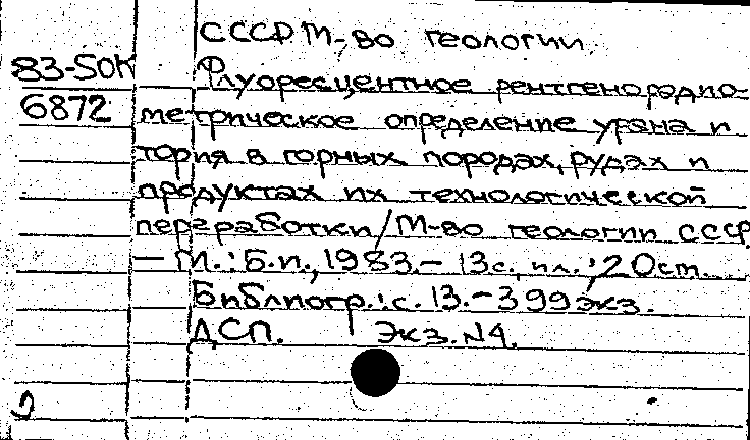 СССР М-во геологии.
83-50К Флуоресцентное рентгенорадио-
6872 метрическое определение урана и
тория в горных породах, рудах и
продуктах их технологической
переработки/М-во геологии СССР
— М.: Б.и., 1983.- 13с., ил.; 20ст.
Библиогр.: с. 13.-399экз.
ДСП. Экз.N4.